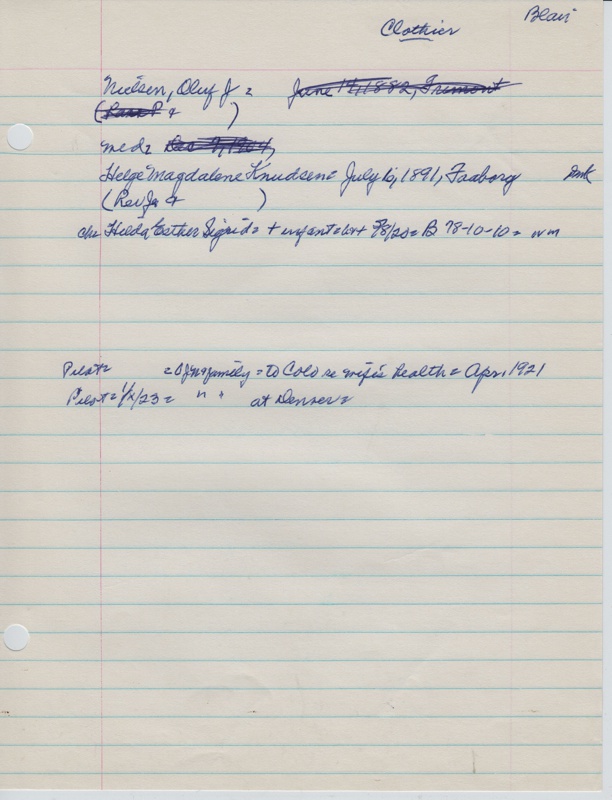 Blair
Clothier
Nielsen, Oluf J =      June 14, 1882, Fremont
(Lars P +      )
med= Dec 7, 1904,
Helge Magdalone Knudsen= July 6, 1891, Faaborg      Dmk
(Rev Jo +      )
ch= Hilda Esther Sigrid= + infant= + 78/20= B 78-10-10= nm
Pilot=      = OJN+family = to Colo re wife's health= Apr, 1921
Pilot= 1/2/23=   " "   at Denver=